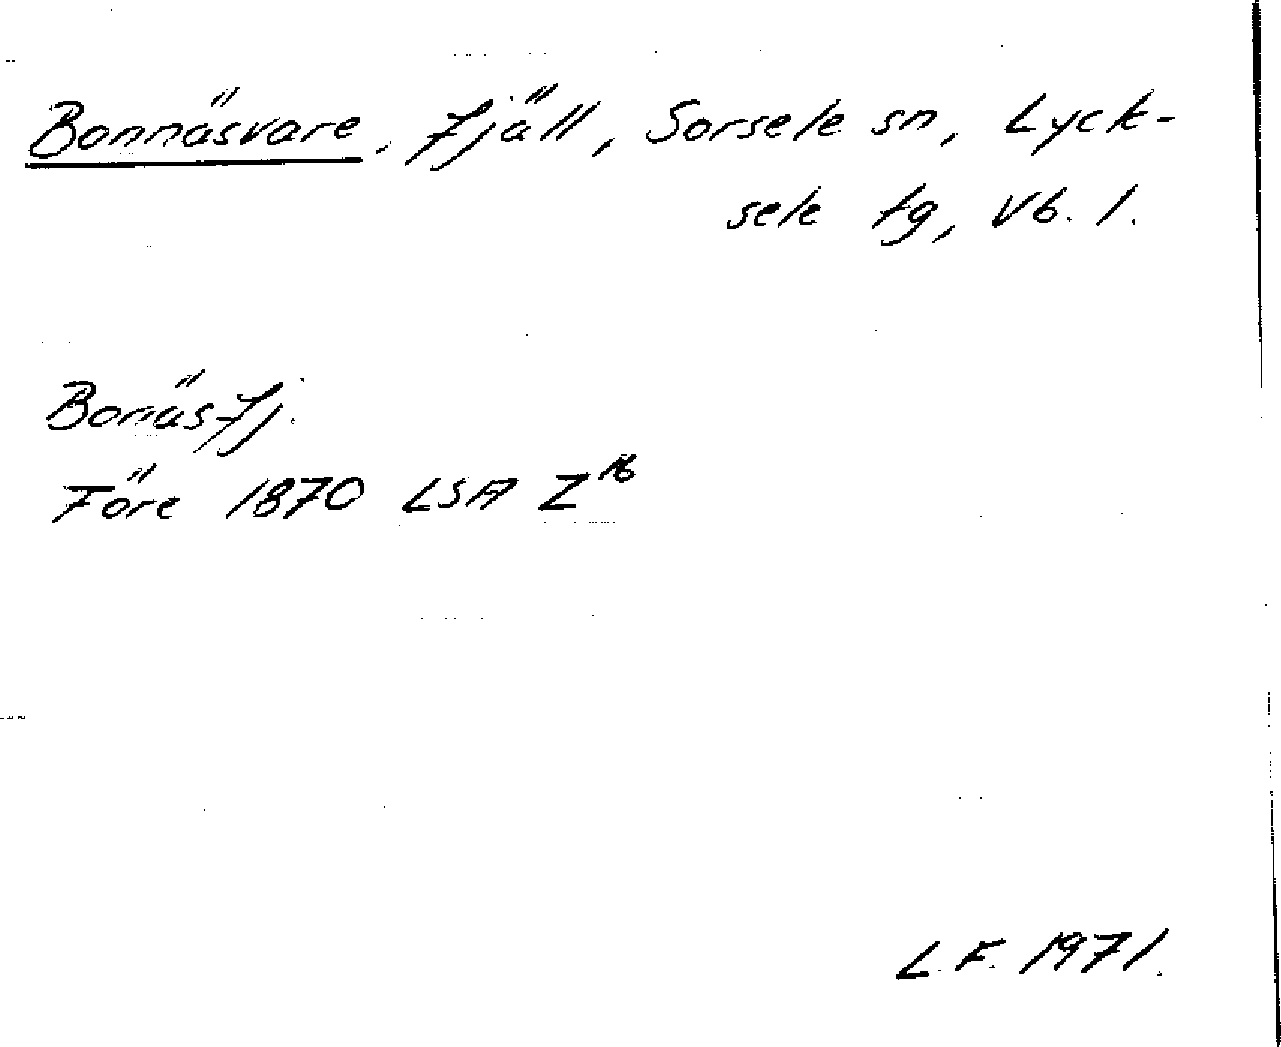 Bonnäsvare, fjäll, Sorsele sn, Lyck-
sele tg, Vb. l.
Bonäsfj.
Före 1870 LSA Z16
L.F. 1971.